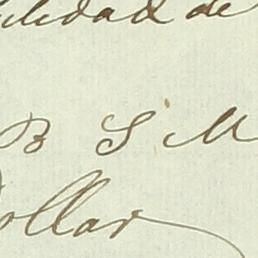 ilidad de
B S M
ollar